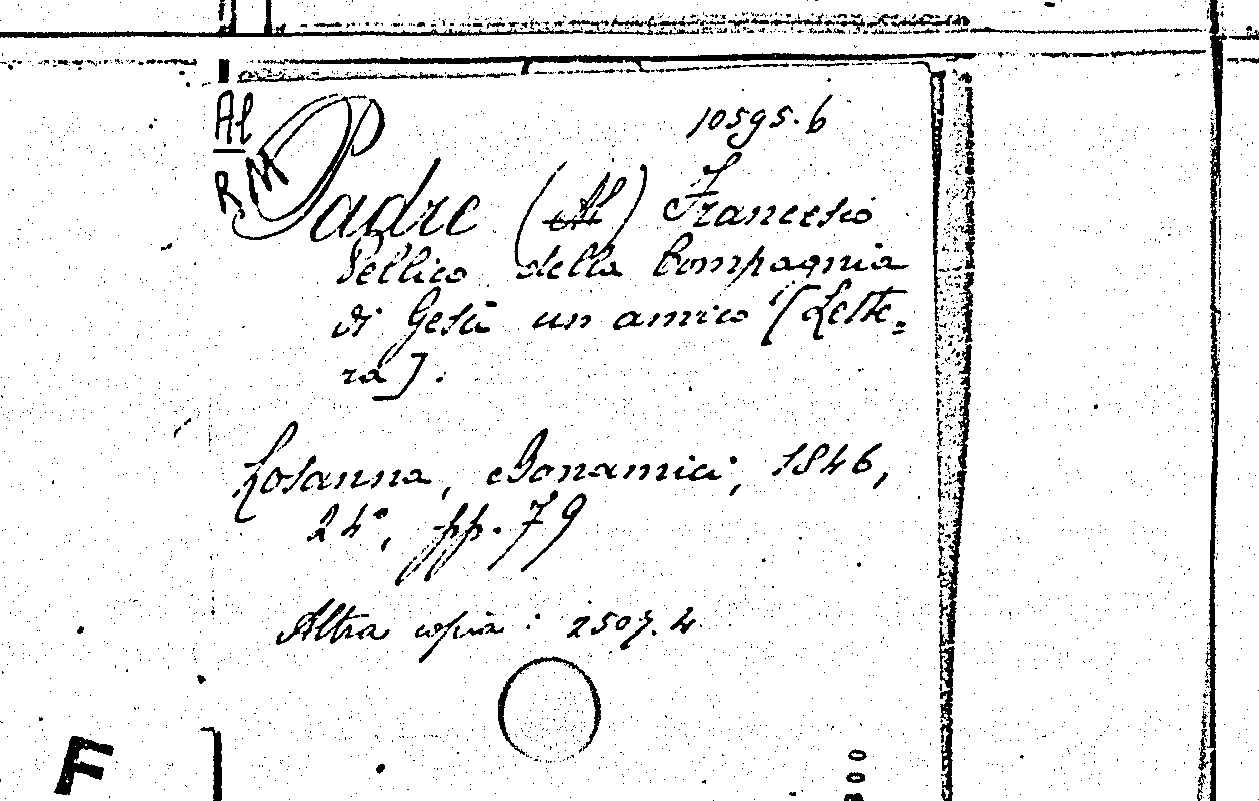 10595.6
Al
RM
Padre (Al) Francesco
Pellico della Compagnia
di Gesù un amico [Lette=
ra].
Losanna, Bonamici, 1846,
24°, pp. 79
Altra copia: 2507.4
F
300